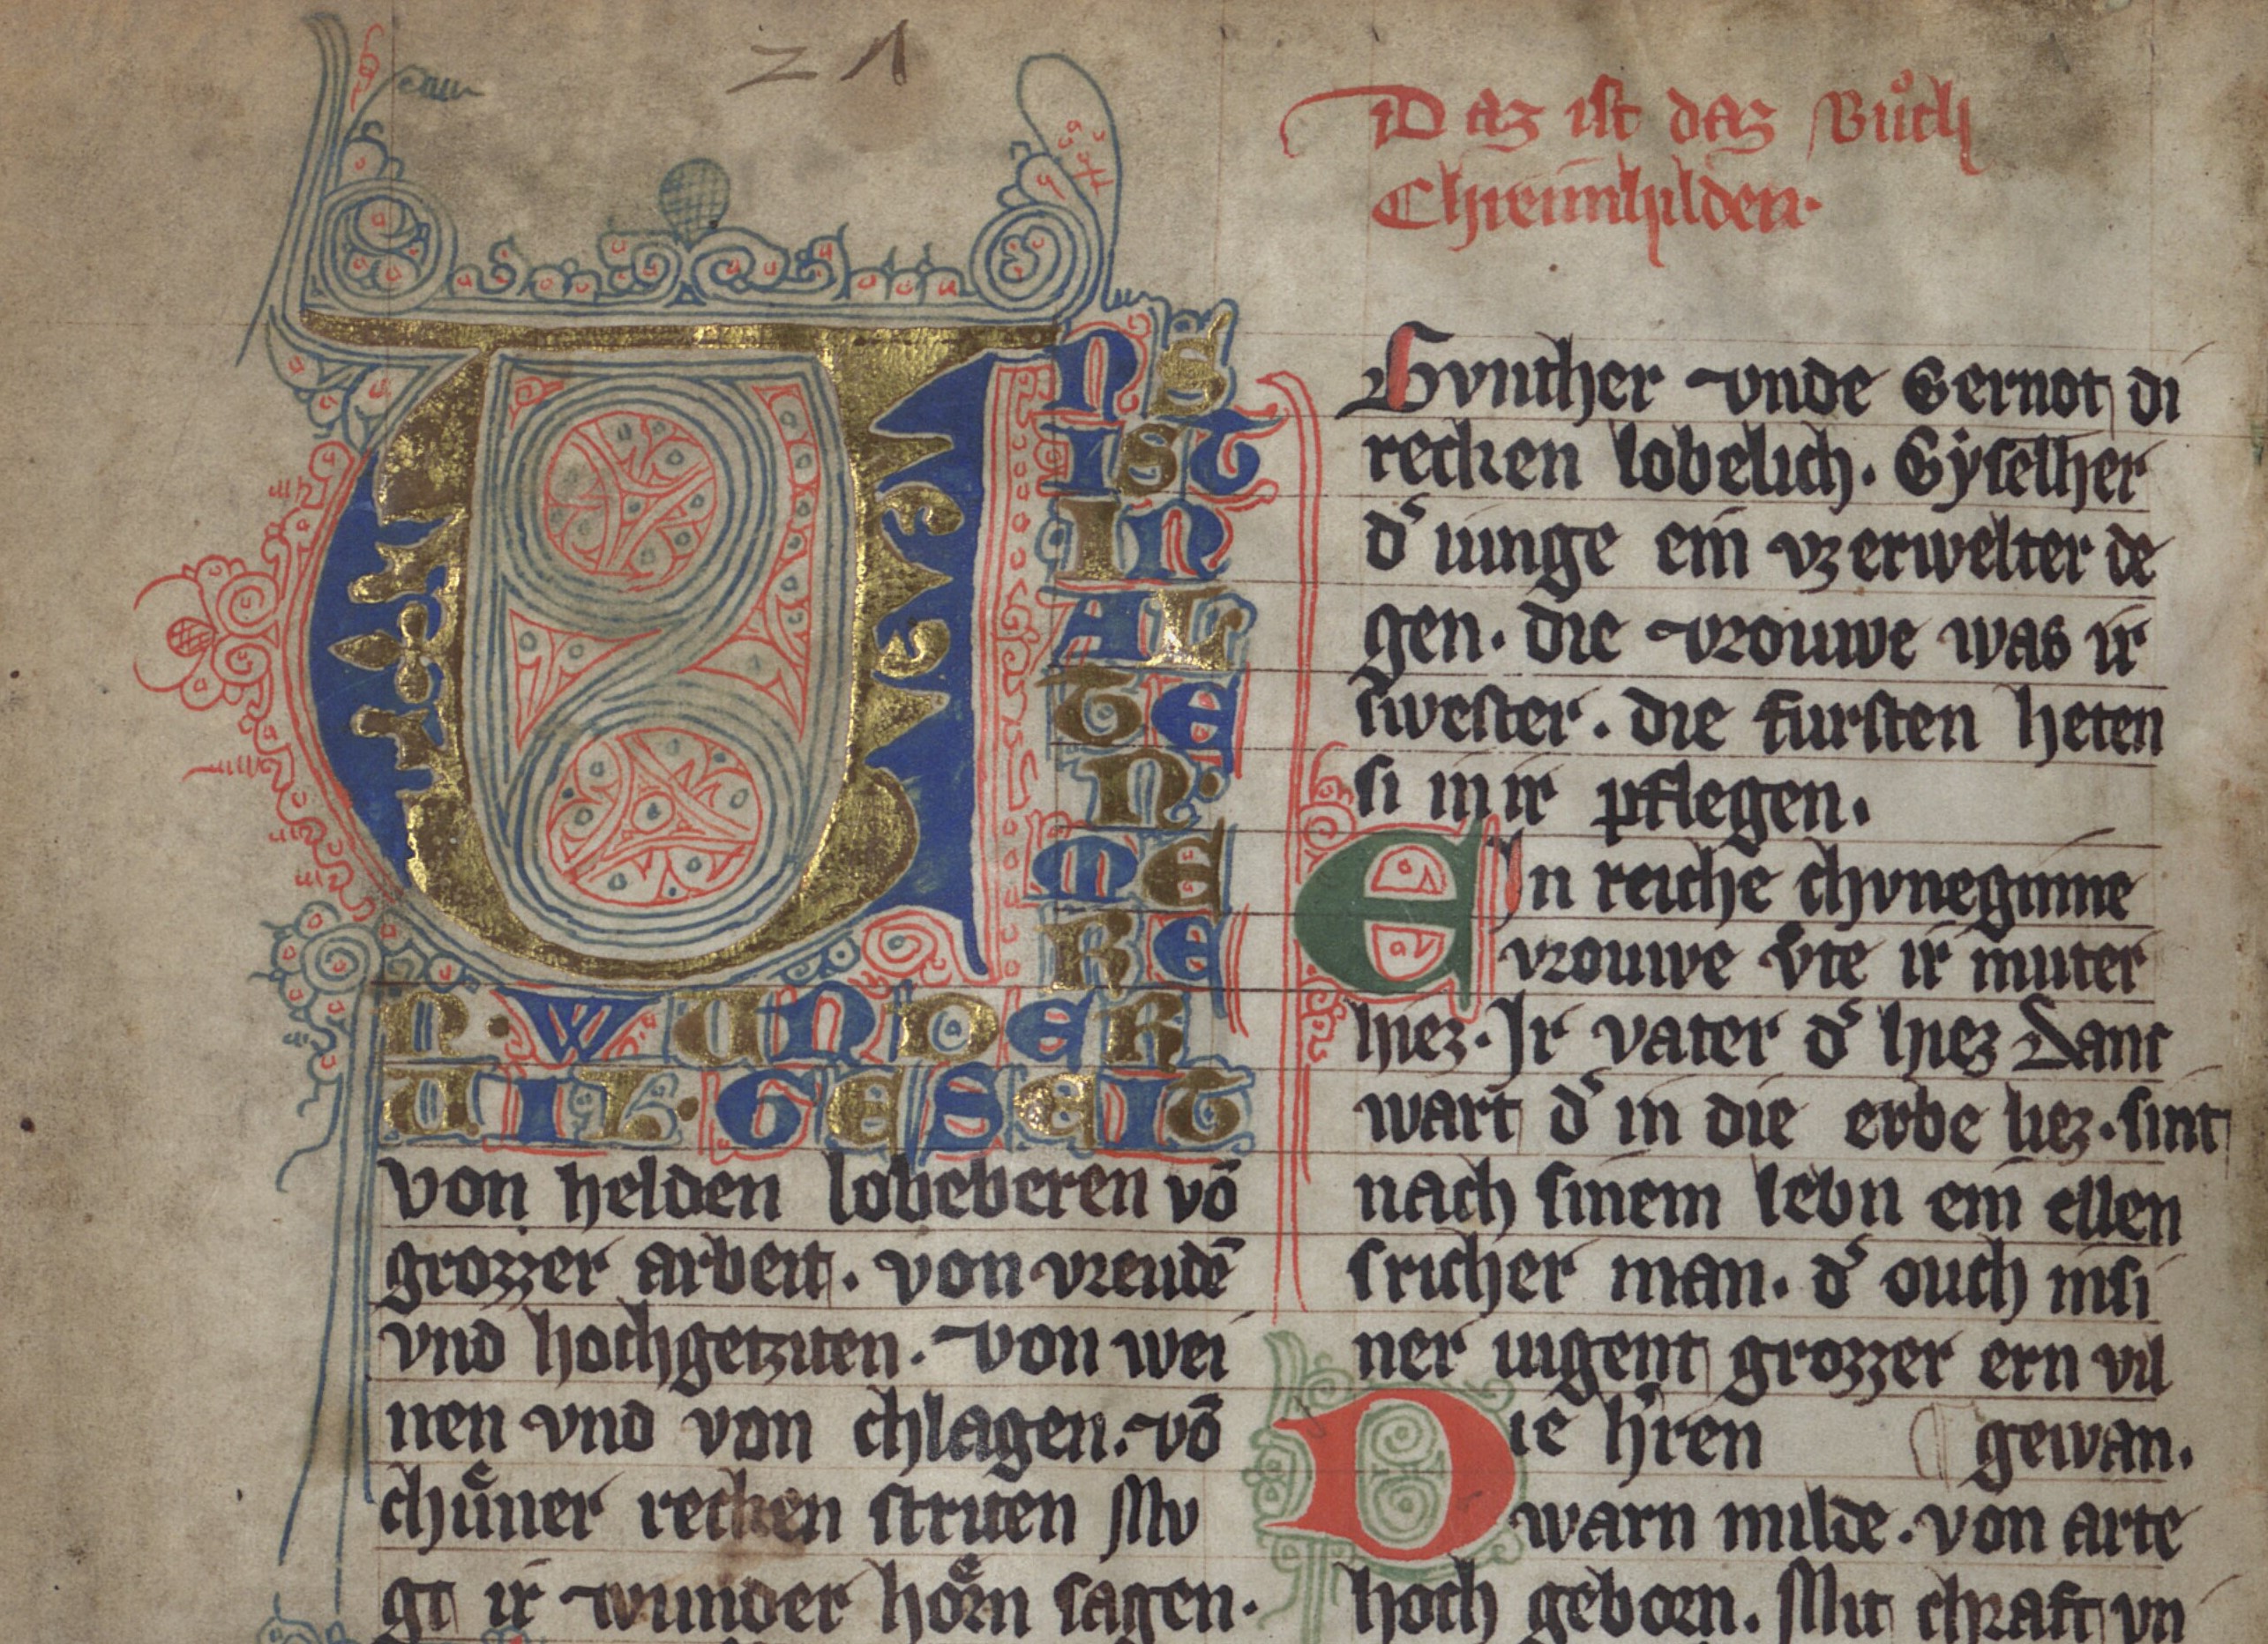 21
UNS
IST
IN
AL
TE
N·
ME
RE
N· WUNDER
UIL· GESEIT
von helden lobeberen vō
grozzer arbeit. von vreudē
vnd hochgetziten. von wei
nen vnd von chlagen. vō
chuͤner recken striten Mv
gt ir wunder hoͤrn sagen.
Daz ist daz Buͦch
Chreimhilden·
Gvnther vnde Gernot di
recken lobelich. Gẏselher
d͛ iunge ein vzerwelter de
gen. die vrouwe was ir
swester. die fursten heten
si in ir pflegen.
Ein reiche chvneginne
vrouwe vͦte ir muter
hiez. Ir vater d͛ hiez Danc
wart d͛ in die erbe liez. sint
nach sinem lebn ein ellen
sricher man. d͛ ouch in si
ner iugent grozzer ern vil
Die h͛ren gewan.
warn milde. von arte
hoch geborn. Mit chraft vn